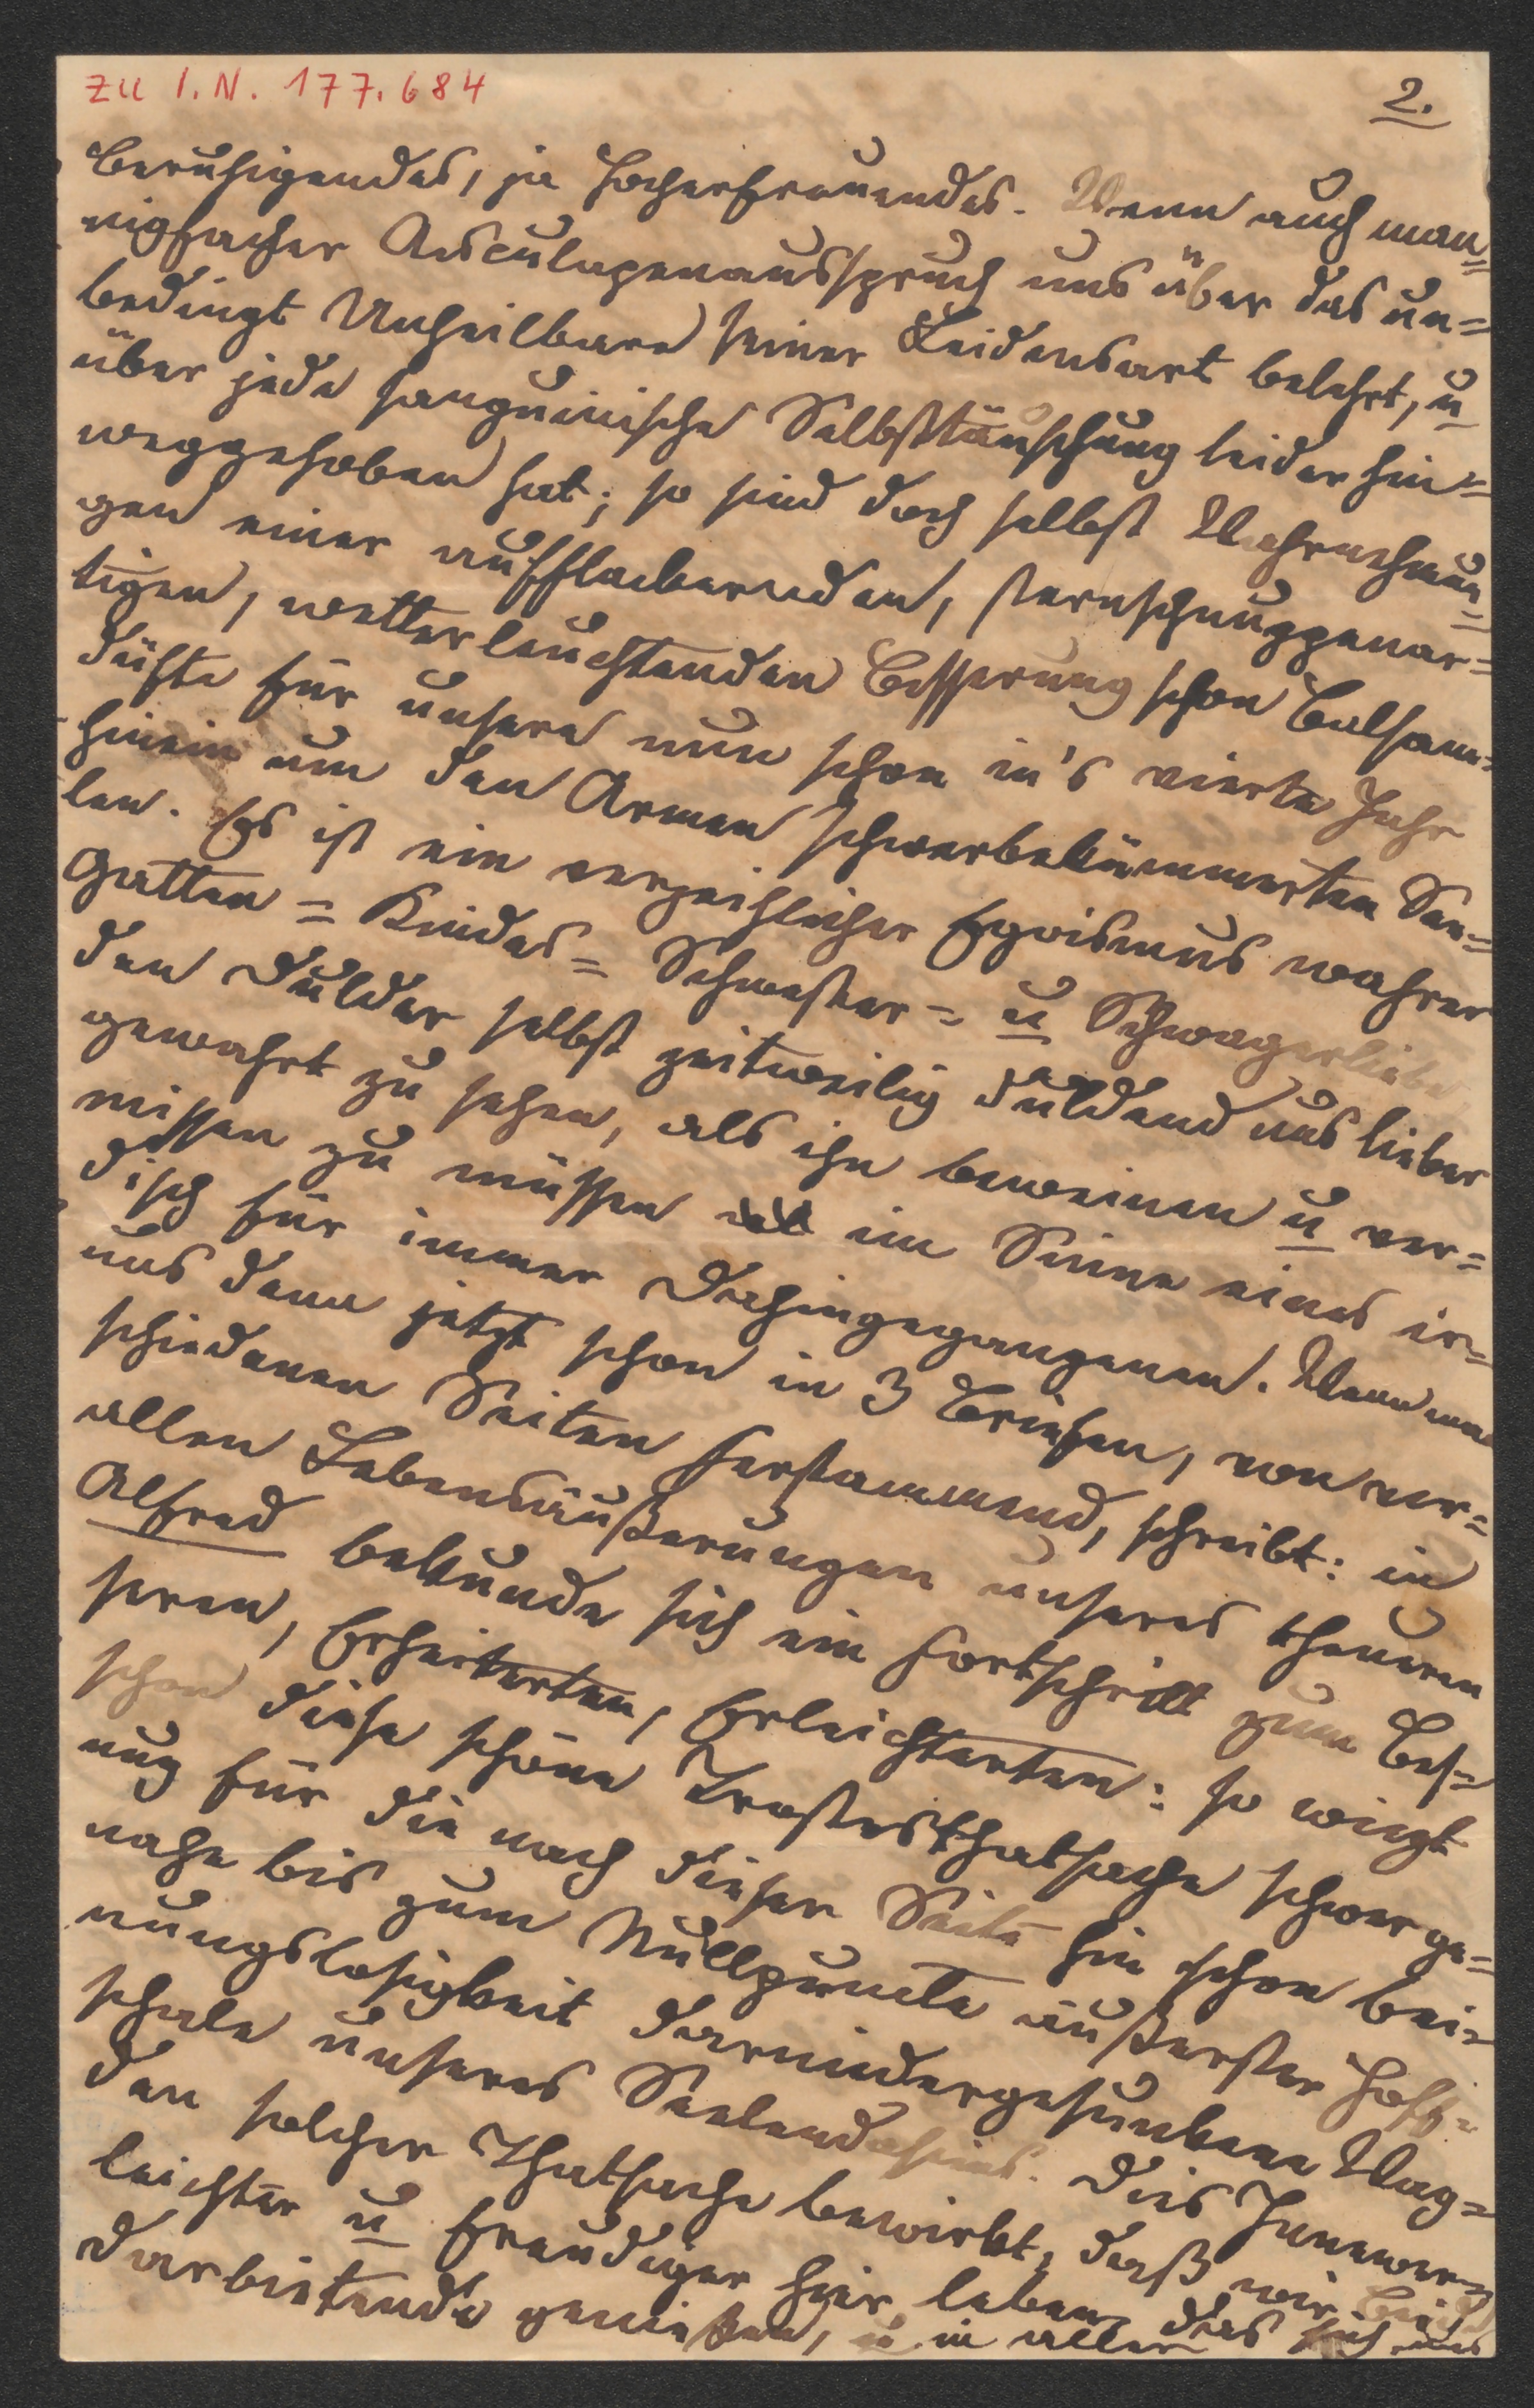 zu I.N. 177.684
2.
Beruhigendes, ja Hocherfreuendes. Wenn auch man=
nigfacher Aesculapenausspruch uns über das un=
bedingt Unheilbare seiner Leidensart belehrt, u
über jede sanguinische Selbsttäuschung leider hin=
weggehoben hat; so sind doch selbst Wahrnehmun=
gen einer aufflackernden, sternschnuppenar=
tigen, wetterleuchtenden Besserung schon Balsam=
düfte für unsere nun schon in's vierte Jahr
hinein um den Armen schwerbekümmerten See=
len. Es ist ein verzeihlicher Egoismus wahrer
Gatten= Kindes= Schwester= u Schwagerliebe
den Dulder selbst zeitweilig duldend uns lieber
gewahrt zu sehen, als ihn beweinen u ver=
missen zu müssen im Sinne eines ir=
disch für immer Dahingegangenen. Wenn man
uns denn jetzt schon in 3 Briefen, von ver=
schiedenen Seiten herstammend, schreibt: in
allen Lebensäußerungen unseres theueren
Alfred bekunde sich ein Fortschritt zum Bes=
seren, Erheiterten, Erleichterten: so wiegt
schon diese schöne Trostesthatsache schwer ge=
nug für die nach dieser Seite hin schon bei=
nahe bis zum Nullpuncte äußerster Hoff=
nungslosigkeit darniedergesunkene Wag=
schale unseres Seelendaseins. Dies Innewer=
den solcher Thatsache bewirkt, daß wir Beide
leichter u freudiger hier leben, das sich uns
darbietende genießen, u in allen